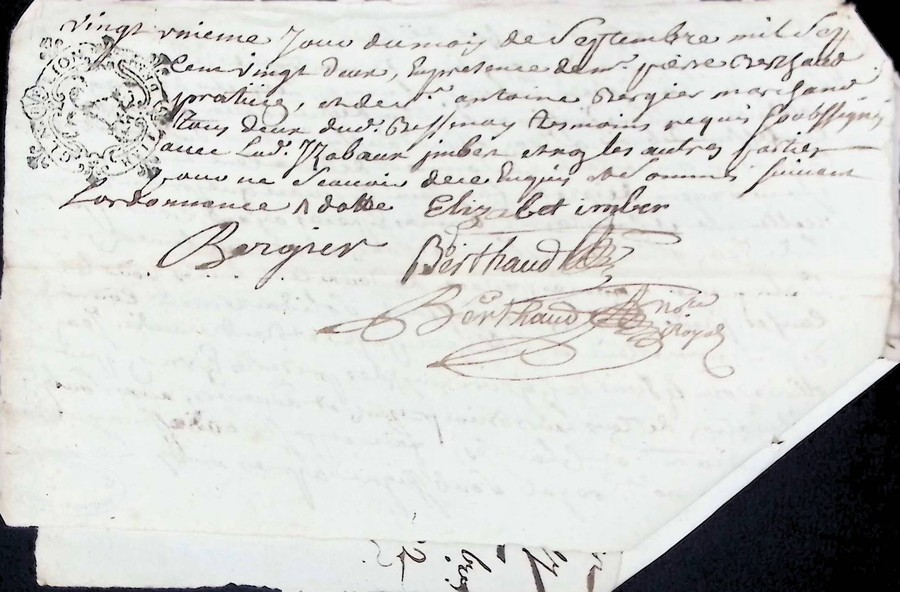 vingt unieme Jour du mois de Septembre mil Sept
Cent vingt Deux, En presence de mr. pierre Berthaud
praticien, et de sr. antoine Bergier marchand
tous deux dud. Temoins requis Soubssignés
avec Lad. Rabaux imber et no les autres parties
pour ne Scavoir de ce Enquis et Sommés suivant
Lordonnance Elizabet imber
Bergier Berthaud
Berthaud notre royal